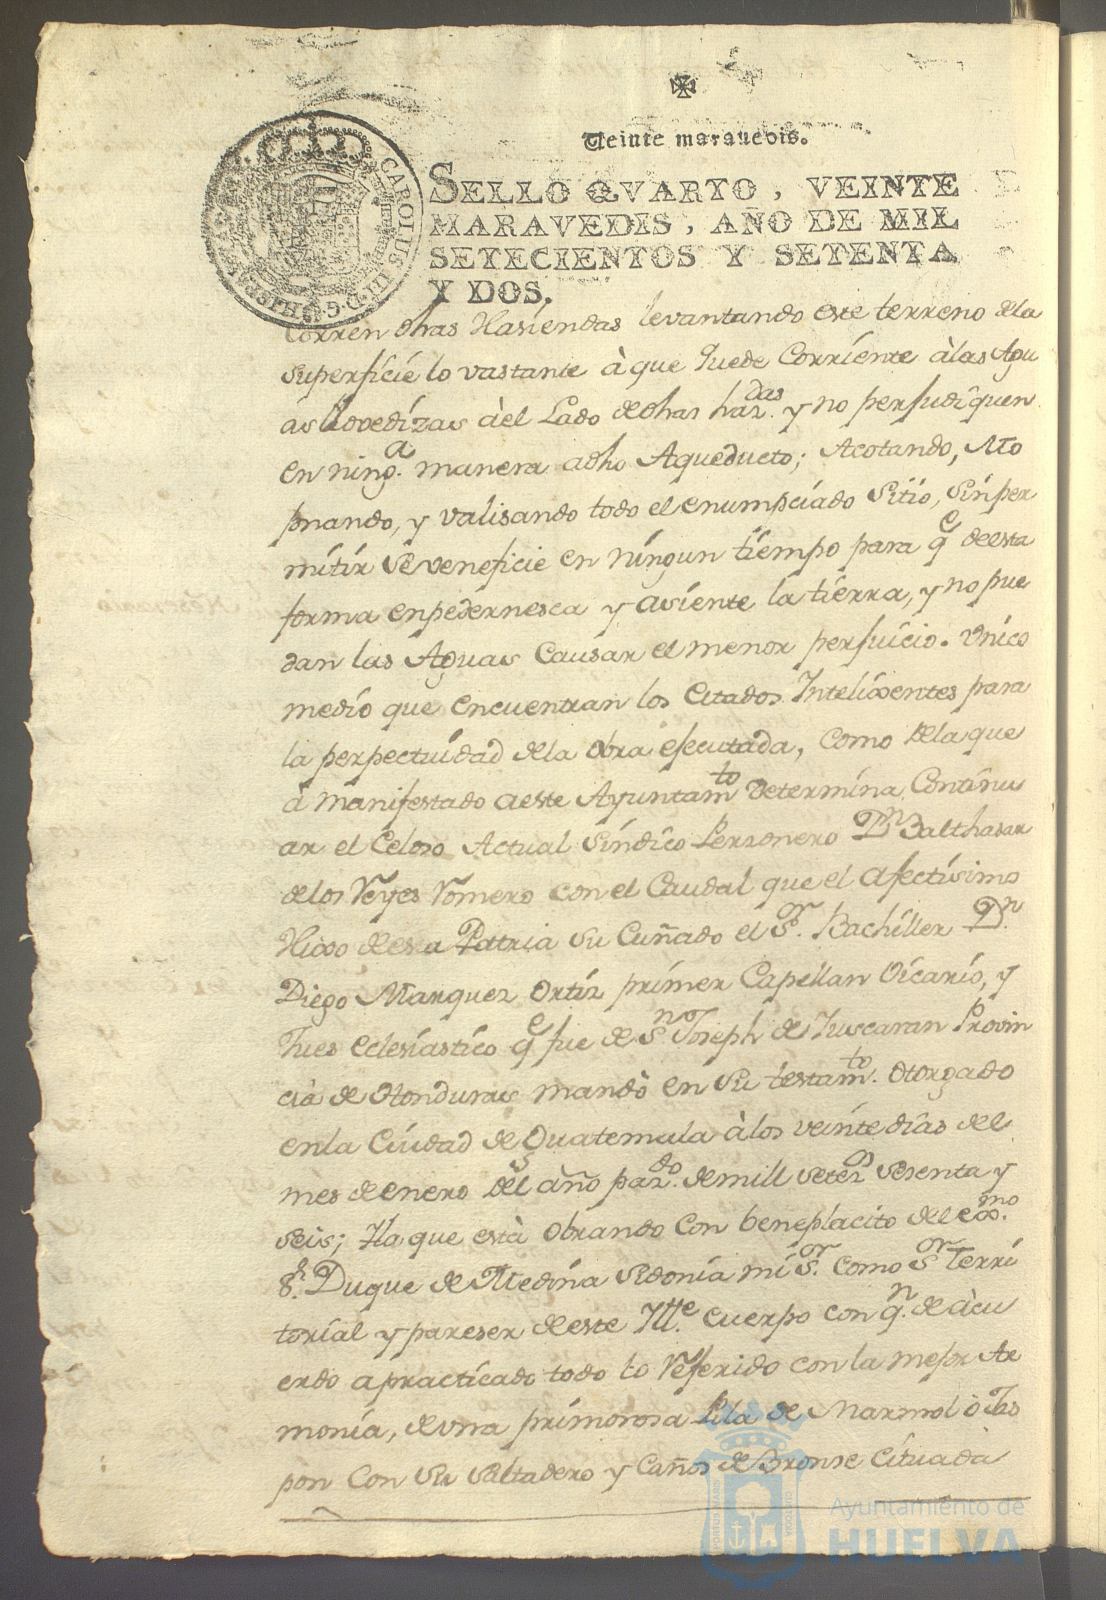 Veinte maravedis.
SELLO QVARTO, VEINTE
MARAVEDIS, AÑO DE MIL
SETECIENTOS Y SETENTA
Y DOS.
CAROLUS III D.G. HISPANIAR
Corren dhas Hasiendas levantando este terreno dela
superficie lo vastante à que quede Corriente àlas Agu
as Advedizas àel Lado de dhas hazdas. y no perjudiquen
en ninga. manera adho Aqueducto; Acotando, Mo
jonando, y valisando todo el enumpciado Sitio, sin per
mitir se veneficie en ningun tiempo para qe de esta
forma enpedernesca y asiente la tierra, y no pue
dan las Aguas Causar el menor perjuicio. Unico
medio que encuentran los Citados Intelixentes para
la perpectuidad dela Obra ejecutada, como dela que
à manifestado aeste Ayuntamto Determina Continu
ar el Celoso Actual Sindico Personero Dn Balthasar
delos Reyes Romero con el Caudal que el afectisimo
Hixo de esa Patria su Cuñado el Sor. Bachiller Dn.
Diego Marquez Ortiz primer Capellan Vicario, y
Jues eclesiastico qe fue de Sn Joseph de Tuscaran Provin
cia de Honduras mandò en su testamto. Otorgado
enla Ciudad de Guatemala àlos veinte dias del
mes de enero del año pazdo. de mill setezs sesenta y
seis; Ila que està obrando con beneplacito del exmo.
Sr. Duque de Medina Sidonia mi Sor. como Sor Terri
torial y pareser de este Ille. Cuerpo con qn. de àcu
erdo apracticado todo lo Referido con la mejor Ar
monia, de vna primorosa Pila de Marmol ò Jas
pon Con su saltadero y Caños de Bronse Cituada
Ayuntamiento de
HUELVA